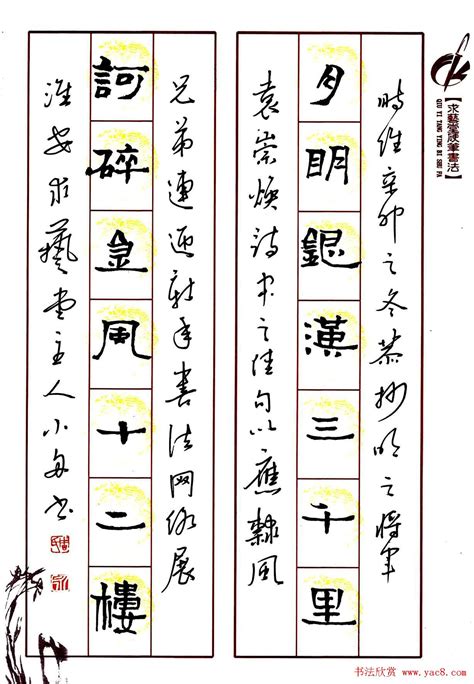 【求藝堂硬筆書法】
QIU YI TANG YING BI SHU FA
時維辛卯之冬恭抄明之將軍
月明銀漢三千里
袁崇煥詩中之佳句以應隸風
兄弟連迎新年書法网络展
訶碎金風十二樓
淮安求藝堂主人小書
书法欣赏 www.yac8.com